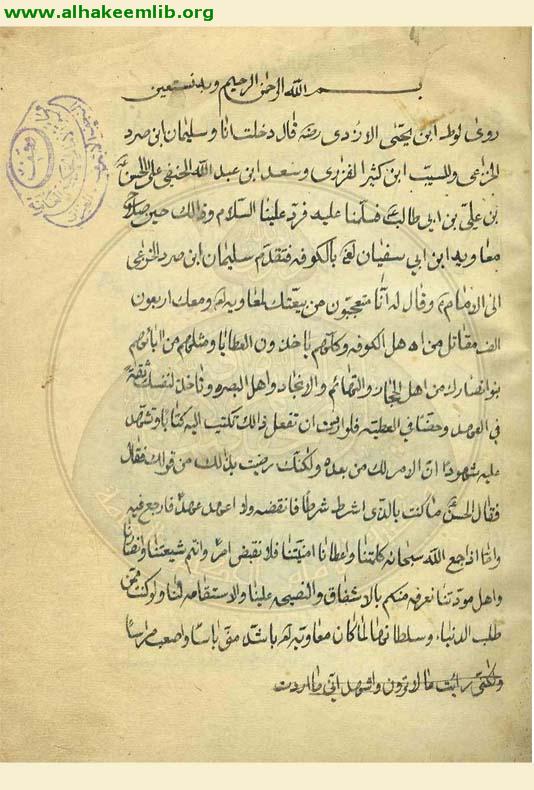 www.alhakeemlib.org
بسم الله الرحمن الرحيم وبه نستعين
روى لوط ابن يحيى الازدى رضه قال دخلت انا وسليمان ابن صرد
الخزاعى والمسيب ابن كثير الفزارى وسعد ابن عبد الله الحنفى على الحسن
بن على بن ابى طالب فسلمنا عليه فرد علينا السلام وذالك حين صالح
معاويه ابن ابى سفيان بالكوفه فتقدم سليمان ابن صرد الخزاعى
الى الامام وقال له انا متعجبون من بيعتك لمعاويه ومعك اربعون
الف مقاتل من اهل الكوفه وكلهم ياخذون العطايا ومثلهم من ابنائهم
بنو انصارك من اهل الحجاز والتهائم والانجاد واهل البصره وتاخذ لنفسك ثقة
فى العهد وحضا فى العطيه فلو ان تفعل ذالك تكتب اليه كتابا وتشهد
عليه شهودا ان الامر لك من بعده ولكنك رضيت بذالك من قوله فقال
فقال الحسن ما كنت بالذى اشرط شرطا فانقضه ولا اعهد عهدا فارجع فيه
واما اذ اجمع الله سبحانه كلمتنا واعطانا امنيتنا فلا نقبض امر وانتم شيعتنا وانصارنا
واهل مودتنا نعرفه منكم بالاشفاق والنصيحه علينا والاستقامه لنا ولو كنت ممن
طلب الدنيا وسلطانها لما كان معاويه باشد منى باسا واصعب مراسا
ولكنى رايت ما لا ترون واشهد انى ما اردت